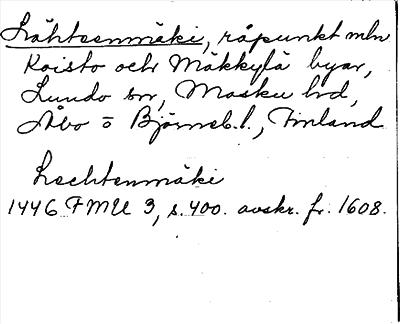 Lähteenmäki, råpunkt mln
Koisto och Mäkkylä byar,
Lundo sn, Masku hd,
Åbo o Björneb. l., Finland
Lechtenmäki
1446 FMU 3, s. 400. avskr. fr. 1608.